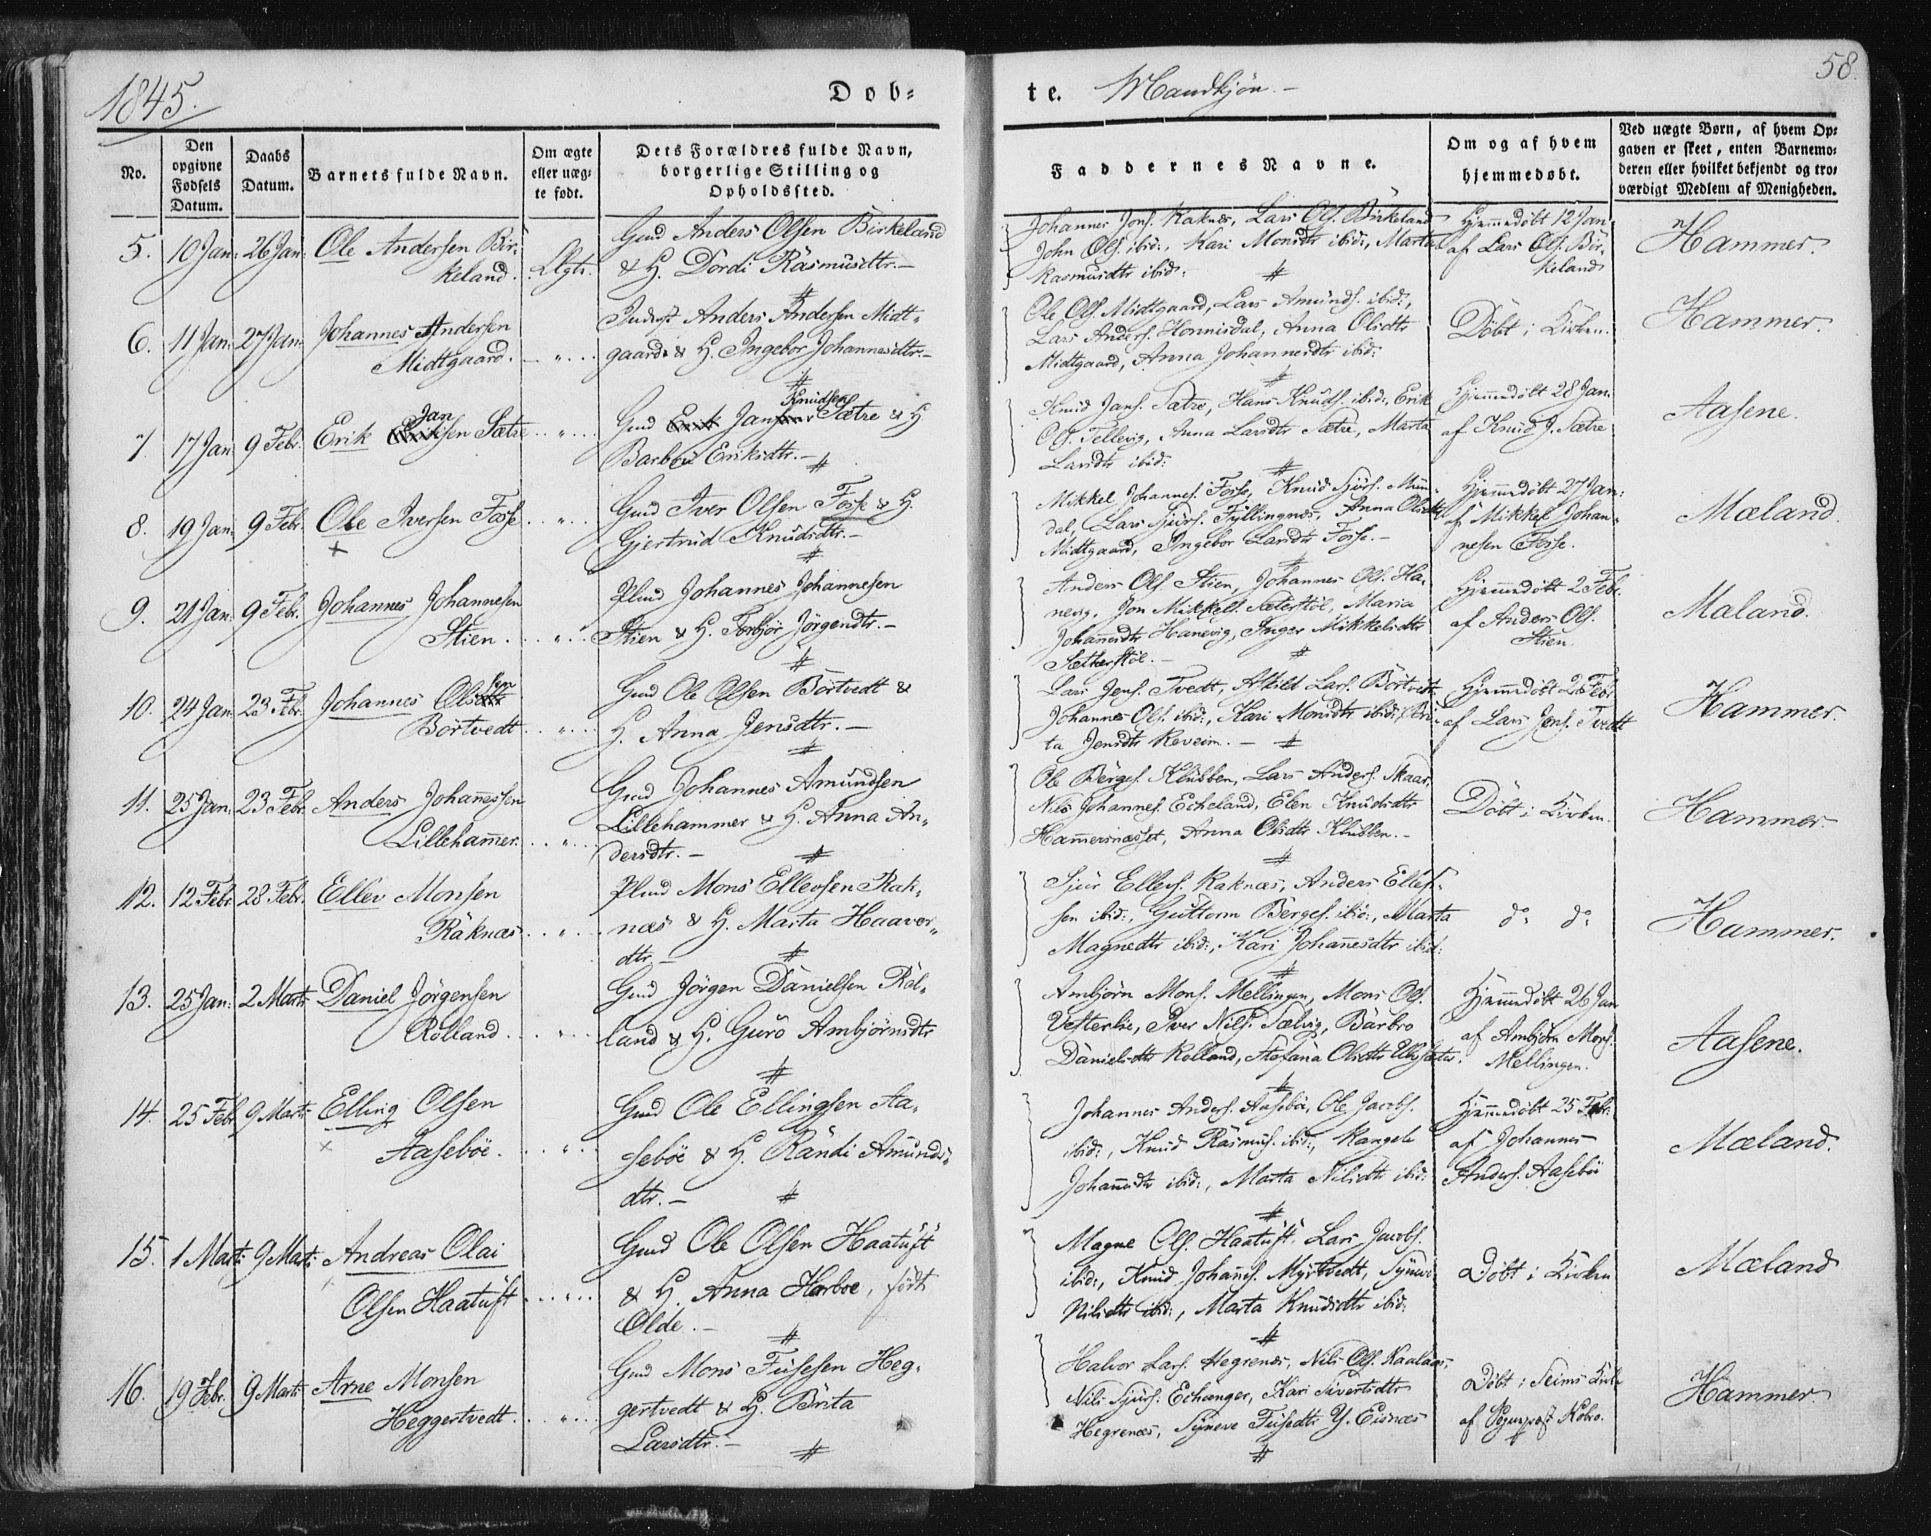 1845.
Dob-
te. Mandkjøn.-
58.
No.
Den opgivne Fødsels Datum.
Daabs Datum.
Barnets fulde Navn.
Om ægte eller uægte født.
Dets Forældres fulde Navn, borgerlige Stilling og Opholdssted.
Faddernes Navne.
Om og af hvem hjemmedøbt.
Ved uægte Børn, af hvem Opgaven er skeet, enten Barnemoderen eller hvilket bekjendt og troværdigt Medlem af Menigheden.
5. 10 Jan: 26 Jan: Ole Andersen Bir-
keland. Ægte.
Gmd Anders Olsen Birkeland
& H. Dordi Rasmusdtr.-
Johannes Jons. Raknes, Lars Ols. Birkeland
John Ols. ibid:, Kari Monsdtr ibid:, Marta
Rasmusdtr ibid:
Hjemmedöbt 12 Jan.
af Lars Ols. Bir-
keland
Hammer.
6. 11 Jan: 27 Jan: Johannes Andersen
Midtgaard. "
Anders Andersen Midt-
gaard & H. Ingebor Johannesdtr.-
Ole Ols. Midtgaard, Lars Amunds. ibid:,
Lars Anders. Honnisdal, Anna Olsdtr
Midtgaard, Anna Johannesdtr ibid:
Döbt i Kirken.
Hammer.
7. 17 Jan 9 Febr. Erik Jansen Sætre "
Gmd Jan Knudsen Sætre & H
Barbro Eriksdtr.-
Knud Jans. Sætre, Hans Knuds. ibid:, Erik
Ols. Tellevig, Anna Larsdtr Sætre, Marta
Larsdtr ibid:
Hjemmedöbt 28 Jan.
af Knud J. Sætre
Aasene.
8. 19 Jan. 9 Febr. Ole Iversen Fosse "
Gmd Iver Olsen Fosse & H.
Gjertrud Knudsdtr.-
Mikkel Johannes. Fosse, Knud Sjurs. Mun-
dal, Lars Sjurs. Fyllingnes, Anna Olsdtr
Midtgaard, Ingebor Larsdtr Fosse.-
Hjemmedöbt 27 Jan:
af Mikkel Johan-
nesen Fosse.
Mæland.
9. 21 Jan: 9 Febr. Johannes Johannesen
Stien. "
Plmd Johannes Johannesen
Stien & H. Torbjör Jörgendtr.-
Anders Ols. Stien, Johannes Ols. Ha-
nevig, Jon Mikkels. Sæterstöl, Maria
Johannesdtr Hanevig, Inger Mikkelsdtr
Sætterstöl.-
Hjemmedöbt 2 Febr.
af Anders Ols.
Stien.
Mæland.
10. 24 Jan. 23 Febr. Johannes Olsen
Börtvedt "
Gmd Ole Olsen Börtvedt &
H. Anna Jensdtr.-
Lars Jens. Tvedt, Askild Lars. Börtvedt
Johannes Ols. ibid:, Kari Monsdtr ibid:, Bri-
ta Jensdtr Reveim.-
Hjemmedöbt 2 Febr.
af Lars Jens. Tvedt
Hammer.
11. 25 Jan: 23 Febr. Anders Johannessen
Lillehammer. "
Gmd Johannes Amundsen
Lillehammer & H. Anna An-
dersdtr.-
Ole Börges. Klubben, Lars Anders. Skaar,
Nils Johannes. Echeland, Elen Knudsdtr
Hammersnæsset, Anna Olsdtr Klubben.-
Döbt i Kirken.
Hammer.
12. 12 Febr 28 Febr. Ellev Monsen
Raknæs "
Plmd Mons Ellevsen Rak-
næs & H. Marta Haavor-
dtr.-
Sjur Ellevs. Raknæs, Anders Ellef-
sen ibid:, Guttorm Börges. ibid:, Marta
Magnedtr ibid:, Kari Johannesdtr ibid:
do: do:
Hammer.
13. 25 Jan: 2 Marts Daniel Jörgensen
Rölland. "
Gmd Jörgen Danielsen Röl-
land & H. Guro Ambjörnsdtr
Ambjörn Mons. Mellingen, Mons Ols.
Vesterlie, Iver Nils. Sælvig, Barbro
Danielsdtr Rolland, Stefana Olsdtr
Hjemmedöbt 26 Jan
af Ambjörn Mons.
Mellingen.
Aasene.
14. 25 Febr 9 Marts Elling Olsen
Aaseböe. "
Gmd Ole Ellingsen Aa-
seböe & H. Randi Amunds-
dtr.-
Johannes Anders. Aaseböe, Ole Jacobs.
ibid:, Knud Rasmus. ibid:, Rangele
Johannesdtr ibid:, Marta Nilsdtr ibid:
Hjemmedöbt 25 Febr.
af Johannes
Anders. Aaseböe
Mæland.
15. 1 Marts 9 Marts Andreas Olai
Olsen Haatuft "
Gmd Ole Olsen Haatuft
& H. Anna Harboe, födt
Olde.-
Magne Ols. Haatuft, Lars Jacobs.
ibid:, Knud Johannes. Myrtvedt, Synevi
Nilsdtr ibid:, Marta Knudsdtr ibid:
Döbt i Kirken
Mæland
16. 19 Febr. 9 Marts Arne Monsen
Heggertvedt. "
Gmd Mons Fusesen Heg-
gertvedt & H. Brita
Larsdtr.-
Halvor Lars. Hegrenes, Nils Ols. Kaalaas,
Nils Sjurs. Echanger, Kari Sivertsdtr
Hegrenæs, Syneve Fusedtr Y. Eisnæs
Döbt i Seims Kirke
af Sognepræst Kobro.
Hammer.